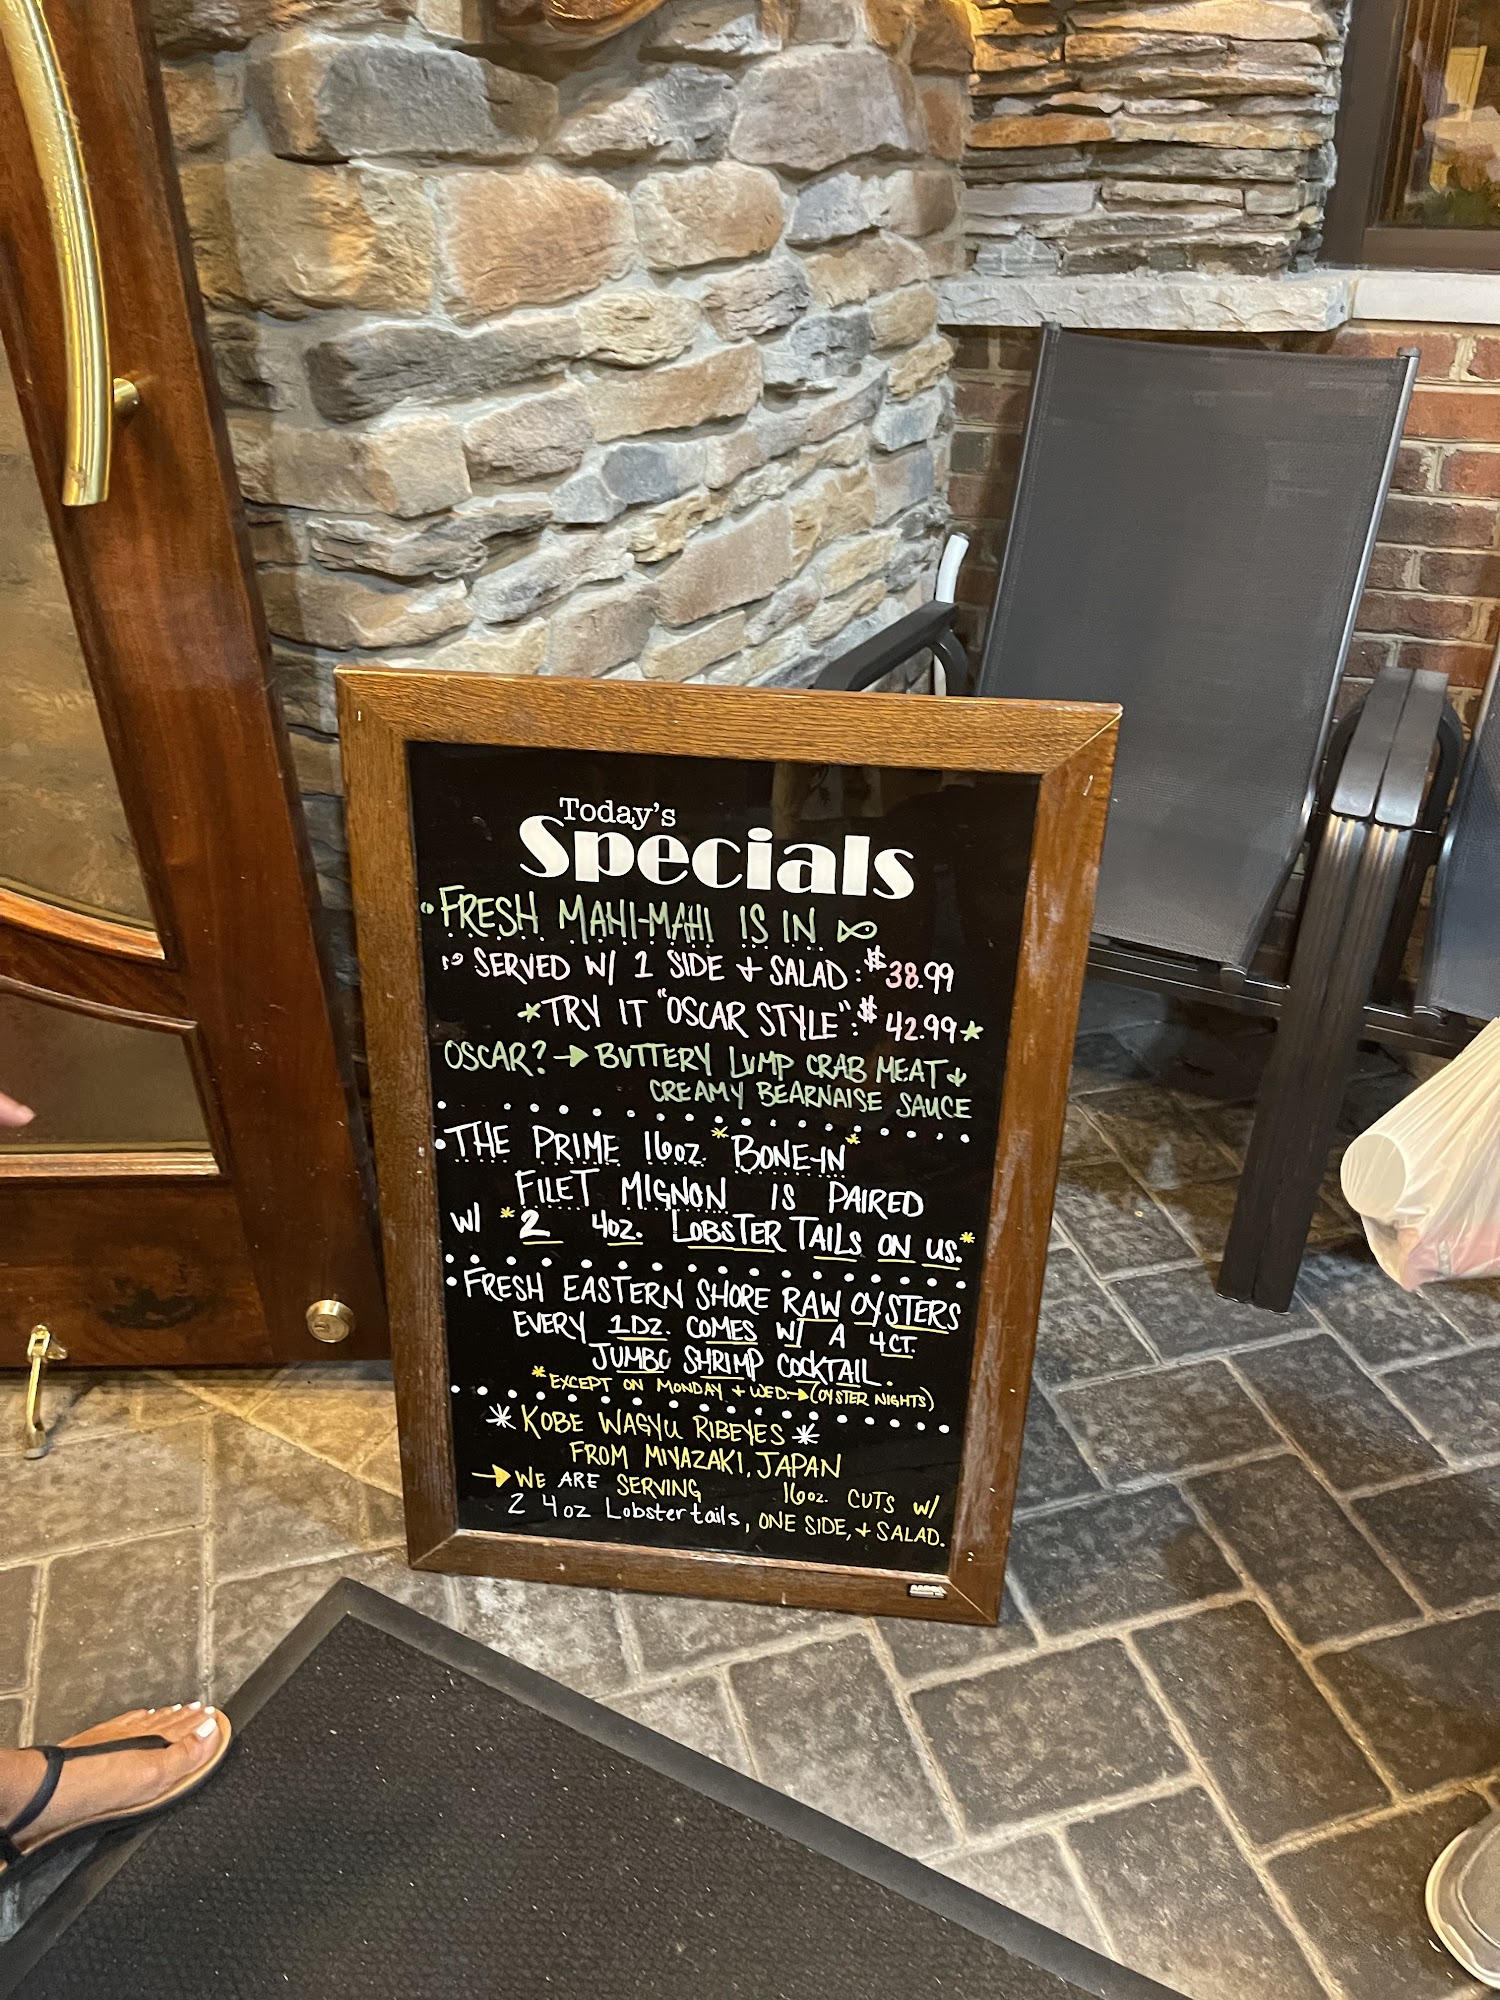 Today's
Specials
• FRESH MAHI-MAHI IS IN
SERVED W/ 1 SIDE + SALAD: $38.99
*TRY IT "OSCAR STYLE": $42.99*
OSCAR? → BUTTERY LUMP CRAB MEAT +
CREAMY BEARNAISE SAUCE
• THE PRIME 16oz. *BONE-IN*
FILET MIGNON IS PAIRED
W/ *2 4oz. LOBSTER TAILS ON US.*
• FRESH EASTERN SHORE RAW OYSTERS
EVERY 1DZ. COMES W/ A 4CT.
JUMBO SHRIMP COCKTAIL.
*EXCEPT ON MONDAY + WED. → (OYSTER NIGHTS)
* KOBE WAGYU RIBEYES *
FROM MIYAZAKI, JAPAN
→ WE ARE SERVING 16oz. CUTS W/
2 4oz Lobstertails, ONE SIDE, + SALAD.